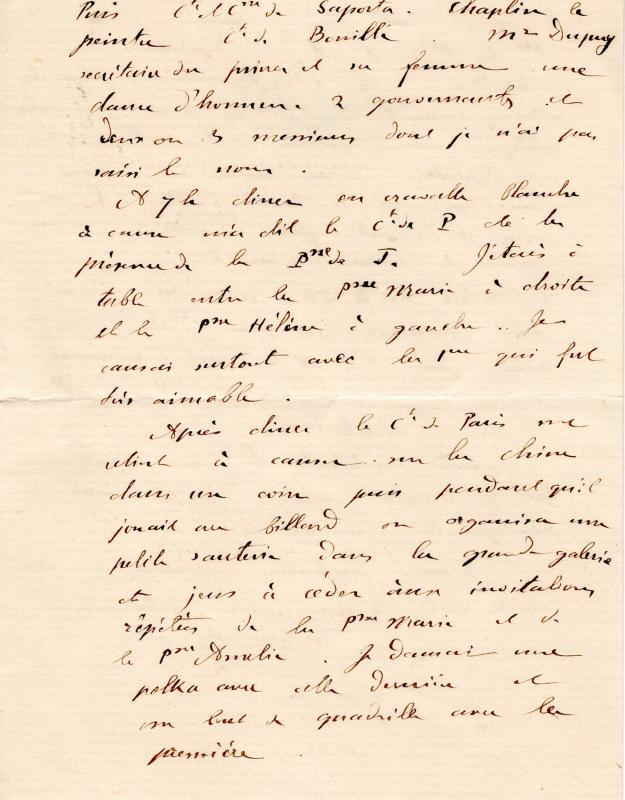 Puis Cte & Ctesse de Saporta. Chaplin le
peintre Cte de Bouillé. Mr Dupuy
secrétaire du prince et sa femme une
dame d'honneur. 2 gouvernantes et
deux ou 3 messieurs dont je n'ai pas
saisi le nom.
A 7 h diner en cravate blanche
à cause m'a dit le Cte de P de la
présence de la Psse de J. J'étais à
table entre la Psse Marie à droite
et la Psse Hélène à gauche.. Je
causai surtout avec la 1re qui fut
très aimable.
Après diner le Cte de Paris me
retint à causer sur la chine
dans un coin puis pendant qu'il
jouait au billard on organisa une
petite sauterie dans la grande galerie
et j'eus à céder aux invitations
répétées de la Psse Marie et de
la Psse Amélie. Je dansai une
polka avec cette dernière et
un bout de quadrille avec la
première.